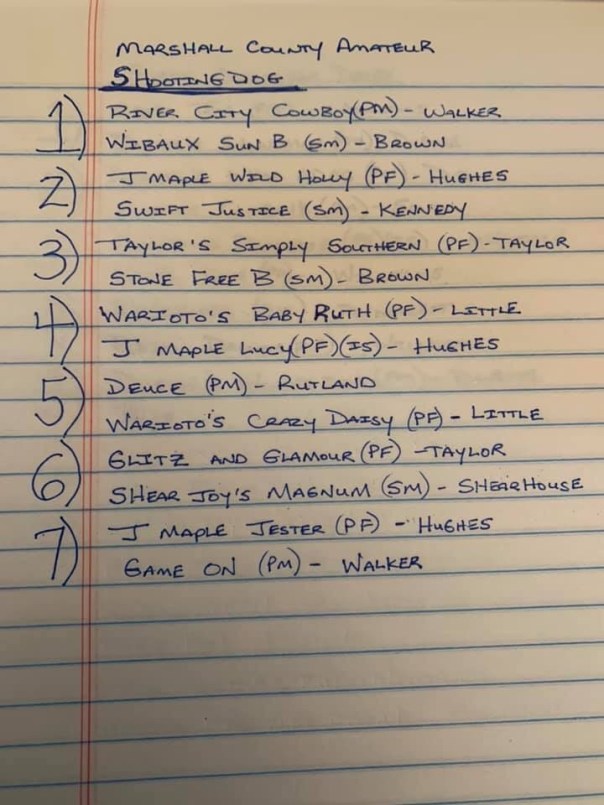 MARSHALL COUNTY AMATEUR
SHOOTING DOG
1) RIVER CITY COWBOY(PM) - WALKER
WIBAUX SUN B (SM) - BROWN
2) J MAPLE WILD HOLLY (PF) - HUGHES
SWIFT JUSTICE (SM) - KENNEDY
3) TAYLOR'S SIMPLY SOUTHERN (PF) - TAYLOR
STONE FREE B (SM) - BROWN
4) WARIOTO'S BABY RUTH (PF) - LITTLE
J MAPLE LUCY(PF)(IS) - HUGHES
5) DEUCE (PM) - RUTLAND
WARIOTO'S CRAZY DAISY (PF) - LITTLE
6) GLITZ AND GLAMOUR (PF) - TAYLOR
SHEAR JOY'S MAGNUM (SM) - SHEARHOUSE
7) J MAPLE JESTER (PF) - HUGHES
GAME ON (PM) - WALKER